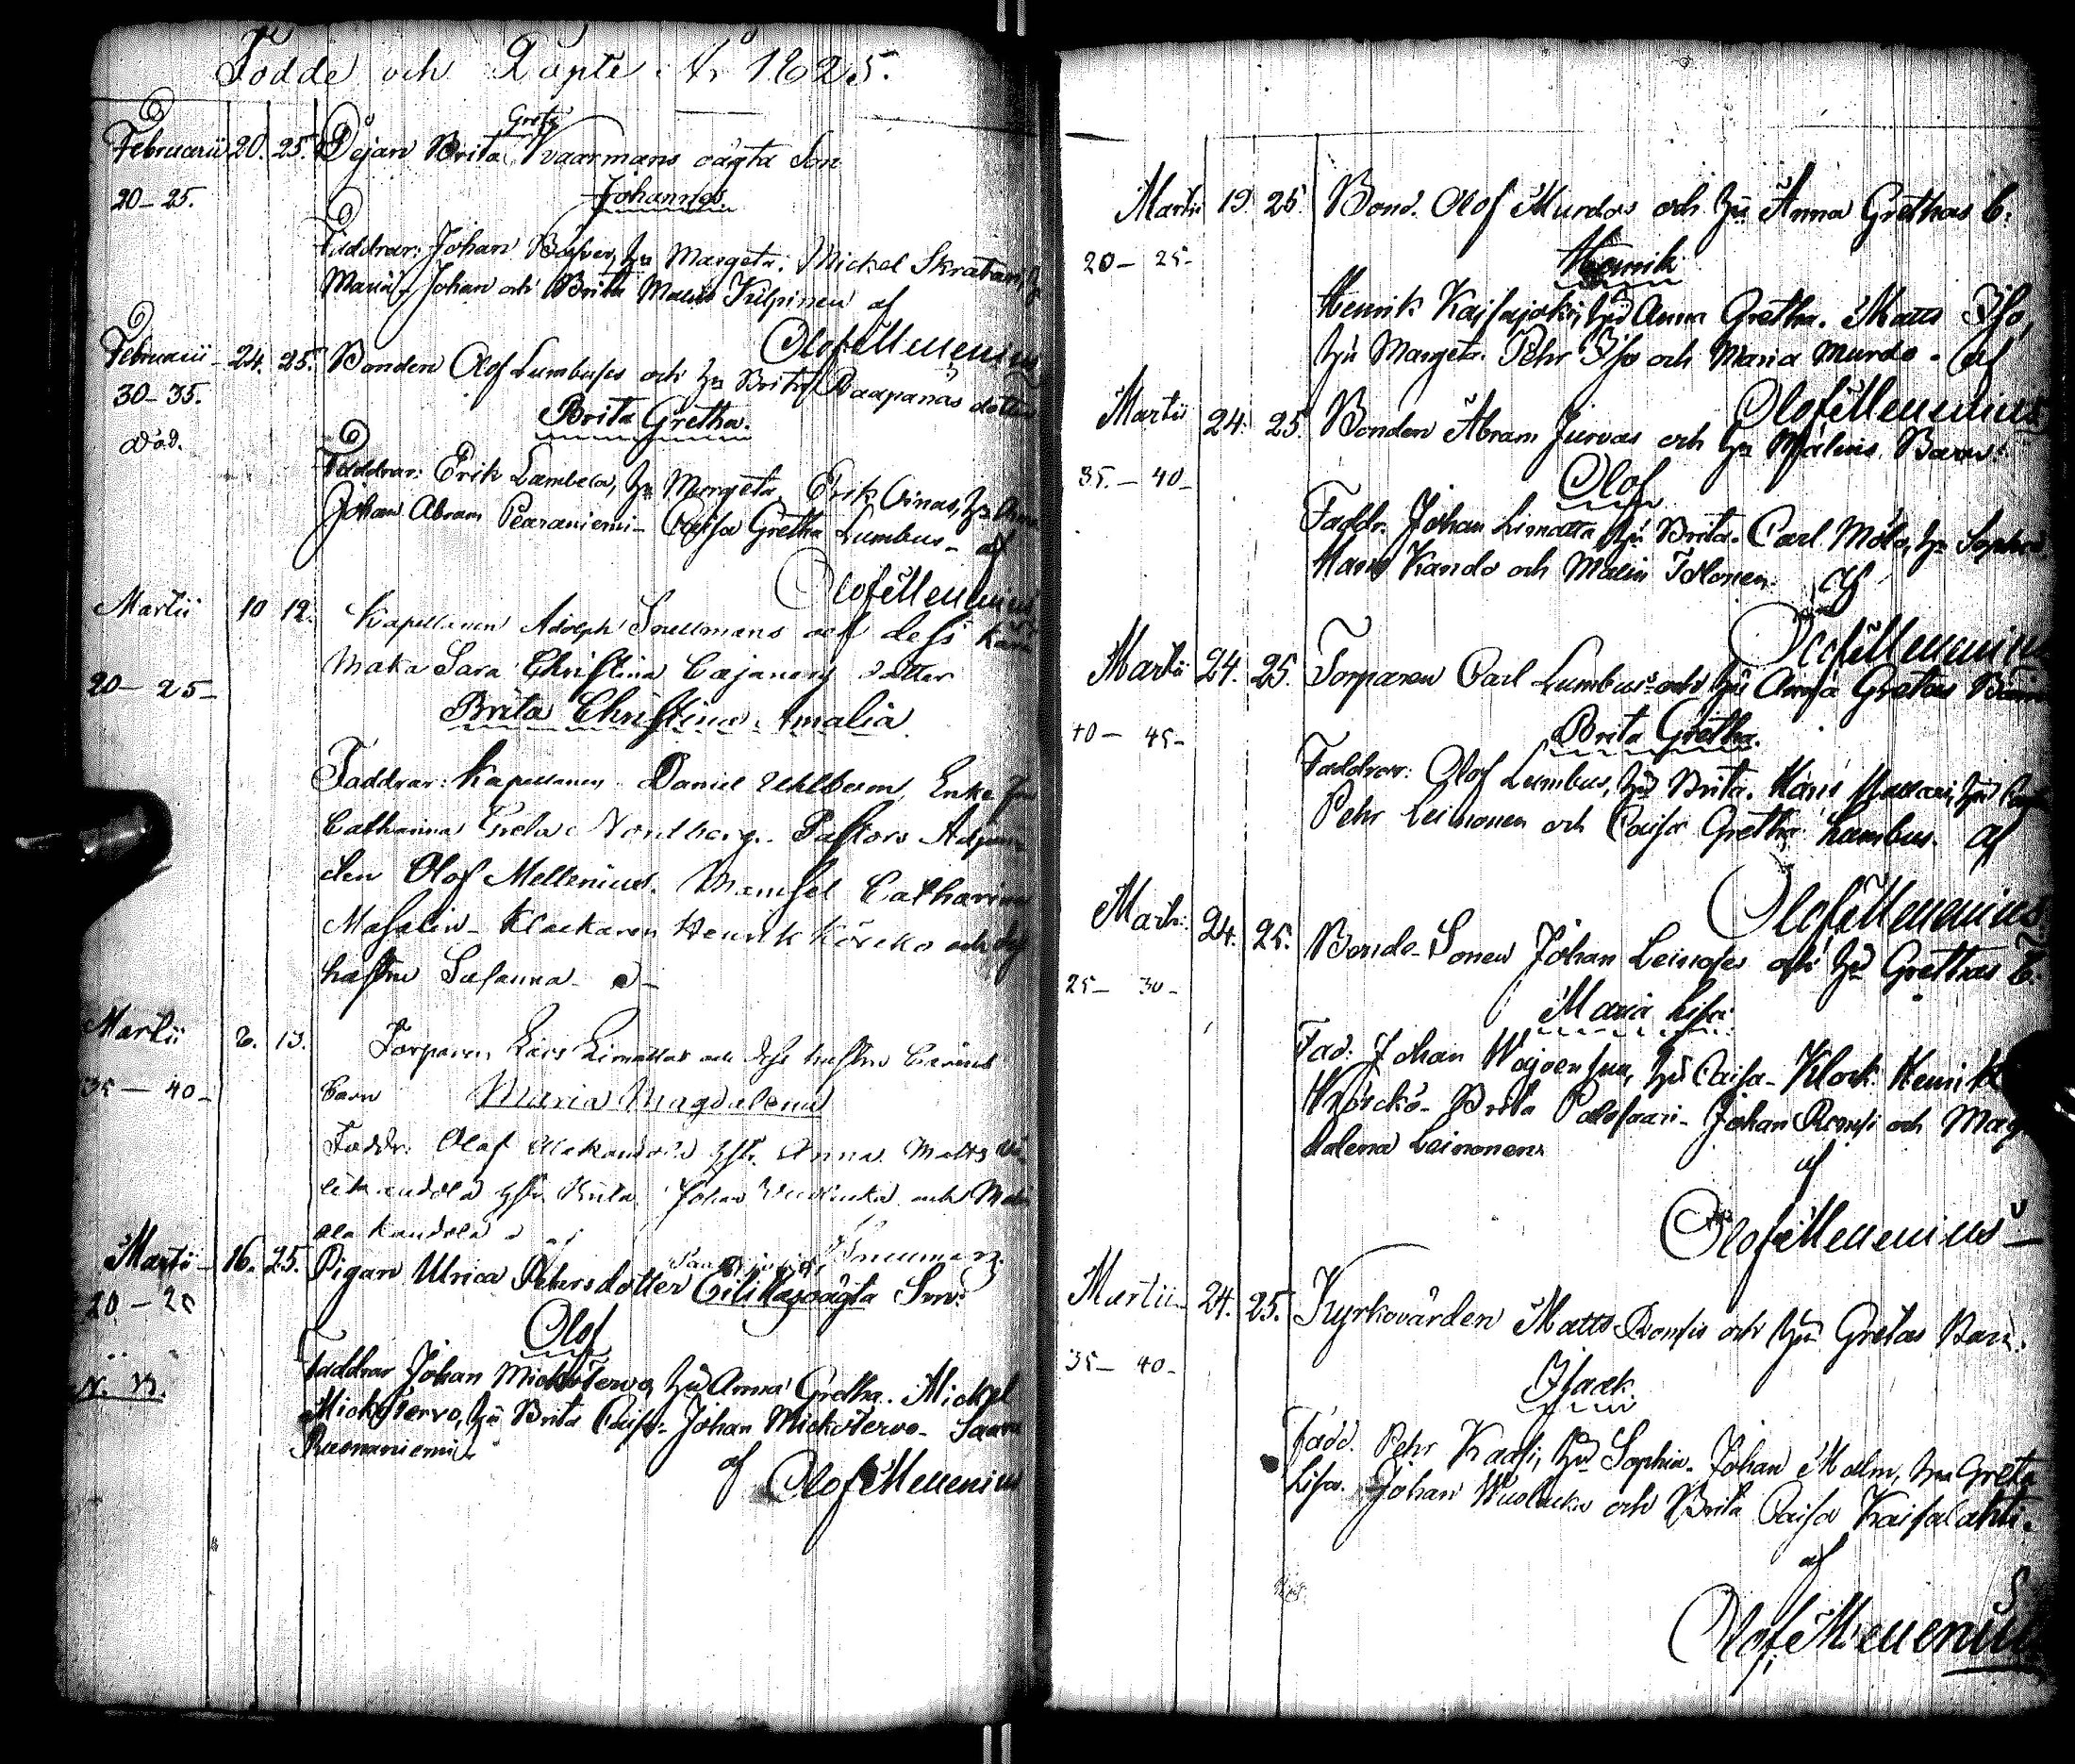 Födde och Döpte År 1825.
Greta
Februarii 20. 25. Dejan Brita Kvaarmans oägta Son
20-25. Johannes.
Faddrar: Johan Hu Margeta. Mickel
Maria - Johan och Brita Malin Kilpinen af
Olof Mellenius
Februarii - 24. 25. Bonden Olof Lumbuses och Hu Brita Paapanäs dotter
30-35. Brita Gretha.
Död.
Faddrar: Erik Lambela, Hu Margeta, Erik Hu Anna
Johan Abram Pearaniemi - Caisa Gretha Lumbus - af
Olof Mellenius
Martii 10 12. Kapellanen Adolph Snellmans och dess kära
20-25- Maka Sara Christina Cajanery dotter
Brita Christina Amalia
Faddrar: Kapellanen Daniel Uhlbom, Enke Fru
Catharina Greta Nordberg. Pastors Adjunc-
ten Olof Mellenius. Mamsel Catharina
Masalin - Klockaren Henrik Körcko och dess
hustru Susanna -
Martii 13. Torparen Lars Limattas och dess hustru
35-40- barn Maria Magdalena
Faddr: Olof Alakandola Hstr. Anna. Matts
Hstr. Brita Johan och
ala Kandola Snellman
Martii - 16. 25. Pigan Ulrica Petersdotter oägta Son
20-25 Olof
N. B. Faddrar Johan Mickotervo, Hu Anna Gretha. Mickel
Mickotervo, Hu Brita Caisa - Johan Mickotervo - Saara
Ruonaniemi
af Olof Mellenius
Martii 19. 25. Bond. Olof Murdos och Hu Anna Grethas b:
20-25- Henrik
Henrik Kaisajoki, Hu Anna Gretha. Matts Iso,
Hu Margeta. Pehr Iso och Maria Murdo - af
Olof Mellenius
Martii 24. 25. Bonden Abram Jurvas och Hu Malins Barn:
35.-40- Olof
Faddr. Johan Limatta Hu Brita - Carl Mölo, Hu Sophia
Hans Kando och Malin Tolonen. af
Olof Mellenius
Martii 24. 25. Torparen Carl Lumbus och Hu Anna Gretas Barn
40-45- Brita Gretha.
Faddrar: Olof Lumbus, Hu Brita. Hans Hu
Pehr Leinonen och Caisa Gretha Lambus. af
Olof Mellenius
Marti: 24. 25. Bonde-Sonen Johan Leinoses och Hu Grethas B.
25-30- Maria Lisa
Fad: Johan Hu Caisa - Klock. Henrik
Körckö - Brita Palosaari - Johan Romsi och Mag
dalena Leinonen.
af
Olof Mellenius
Martii - 24. 25. Kyrkovärden Matts Romsis och Hu Gretas Barn.
35-40- Isaak.
Fadd. Pehr Kaasi, Hu Sophia - Johan Malm, Hu Greta
Lisa. Johan Wuolucko och Brita Caisa Kaisalahti.
af
Olof Mellenius